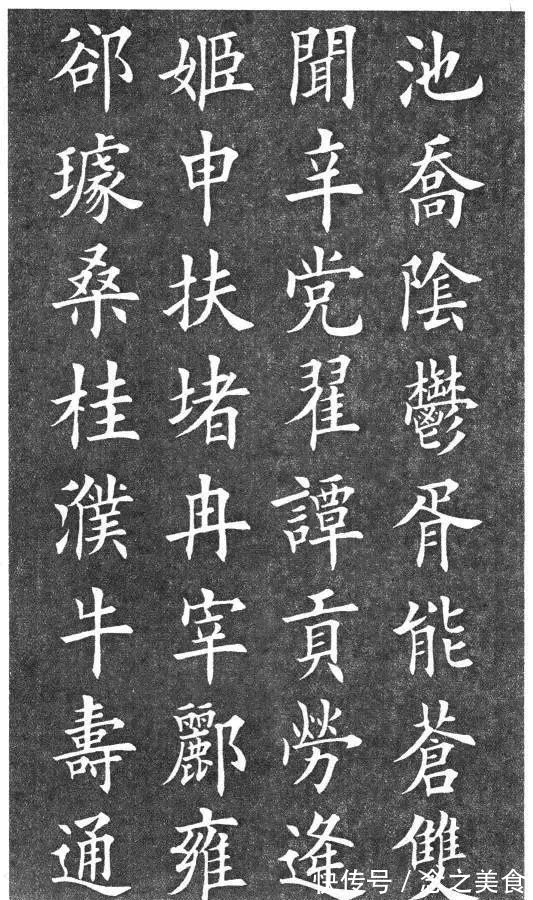 池喬陰鬱胥能蒼雙
聞辛党翟譚貢勞逄
姬申扶堵冉宰酈雍
郤璩桑桂濮牛壽通
快传号/念之美食